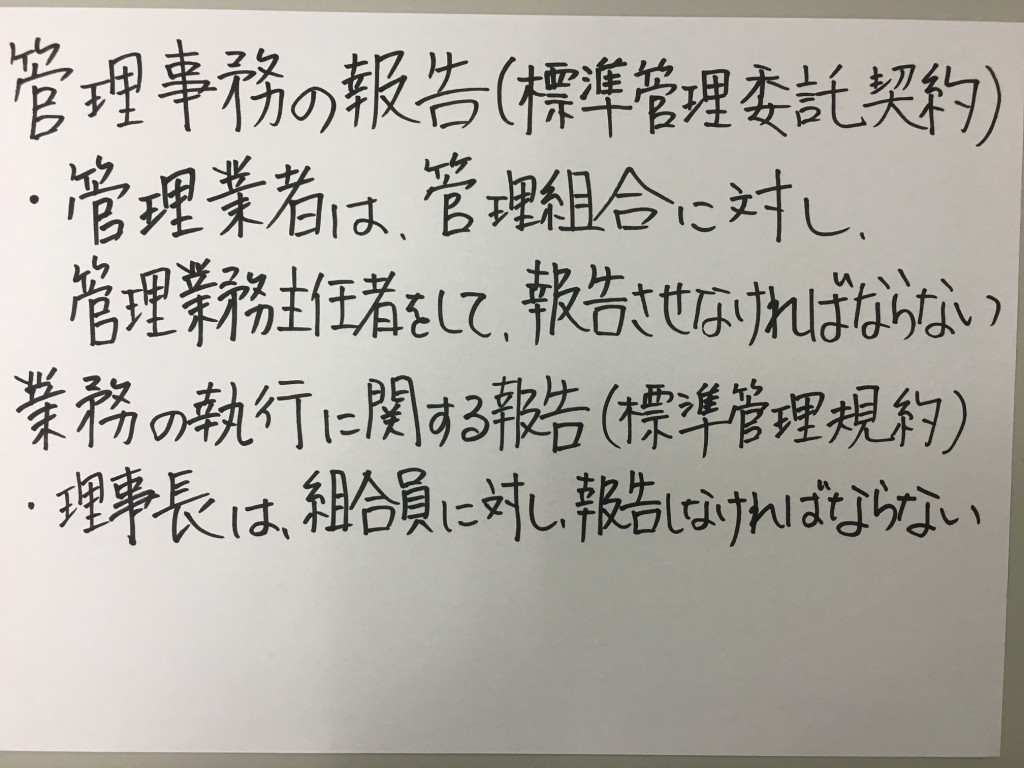 管理事務の報告(標準管理委託契約)
・管理業者は、管理組合に対し、
管理業務主任者をして、報告させなければならない
業務の執行に関する報告(標準管理規約)
・理事長は、組合員に対し、報告しなければならない